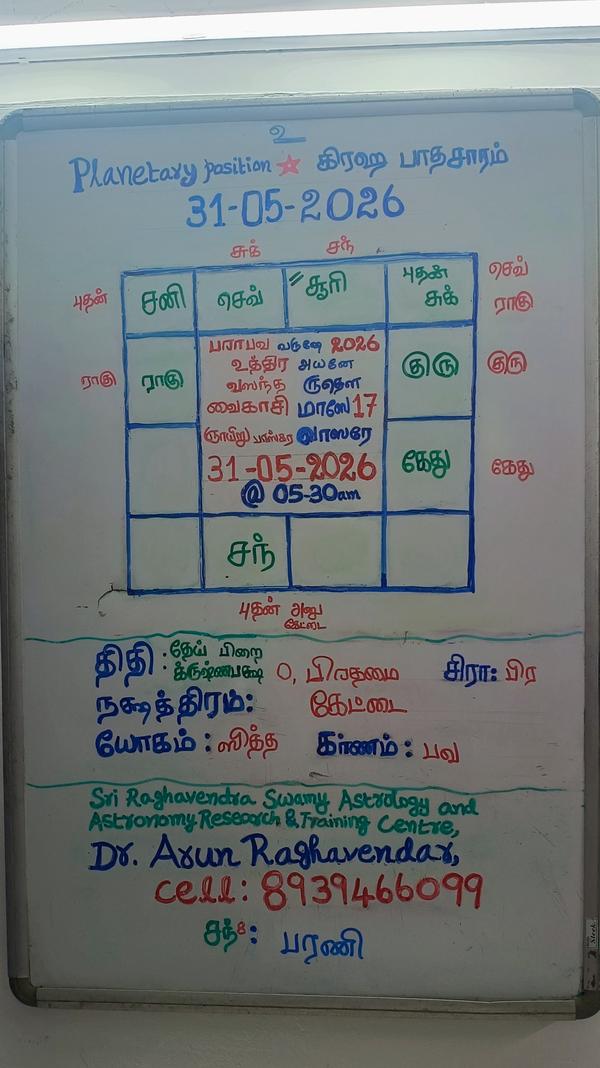 உ
Planetary position ★ கிரஹ பாதசாரம்
31-05-2026
சுக் சந்
புதன் சனி செவ் சூரி புதன் சுக் செவ் ராகு
பராபவ வருஷே 2026
உத்திர அயனே
ராகு ராகு குரு குரு
வஸந்த ருதௌ
வைகாசி மாஸே 17
ஞாயிறு பாஸ்கர வாஸரே
கேது கேது
31-05-2026
@ 05-30am
சந்
புதன் அனு
கேட்டை
திதி : தேய் பிறை
க்ருஷ்ணபக்ஷ 0, பிரதமை சிரா: பிர
நக்ஷத்திரம்: கேட்டை
யோகம் : ஸித்த கர்ணம் : பவ
Sri Raghavendra Swamy Astrology and
Astronomy Research & Training Centre,
Dr. Arun Raghavendar,
cell: 8939466099
சந் 8 : பரணி